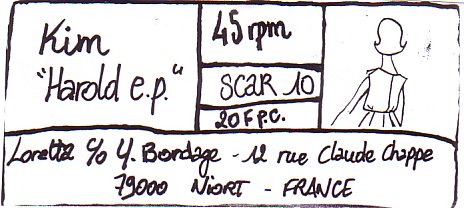 Kim
"Harold e.p."
45 rpm
SCAR 10
20 F P.C.
Loretta c/o Y. Bordage - 12 rue Claude Chappe
79000 NiORT - FRANCE